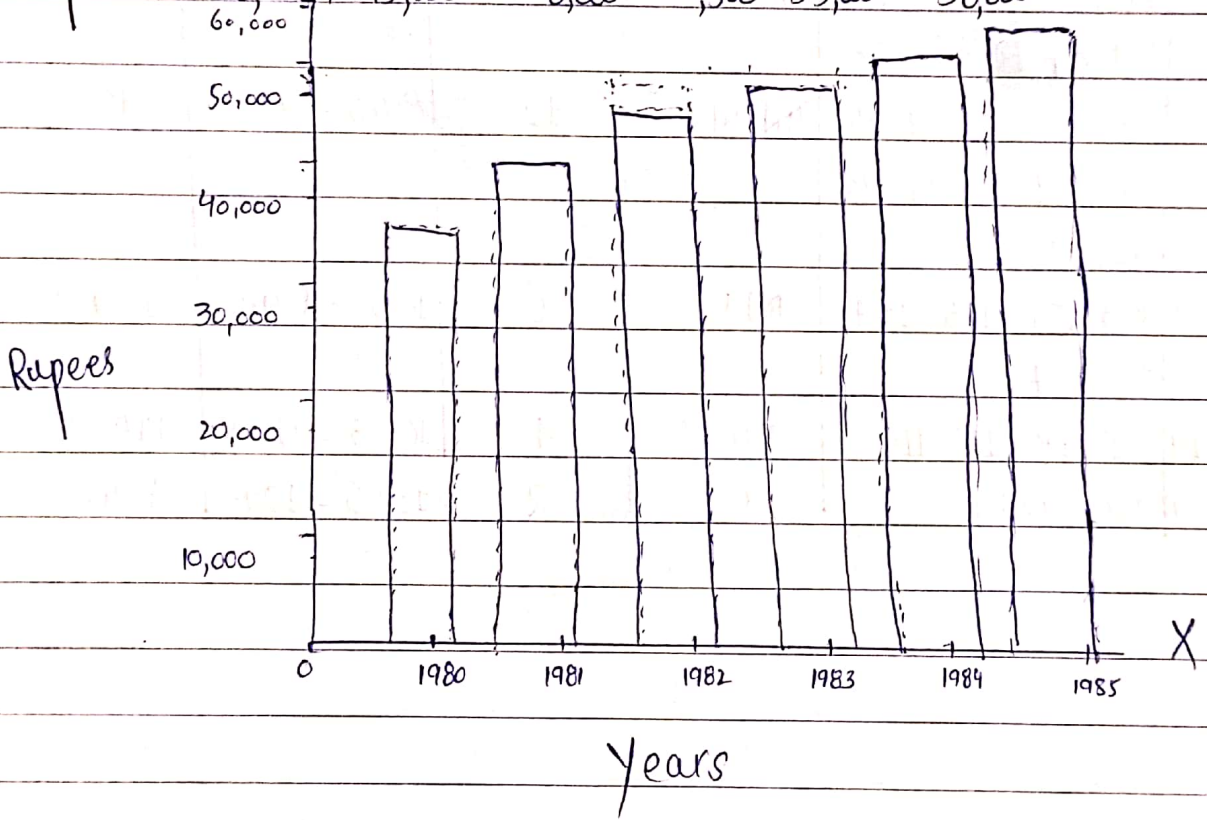 60,000
50,000
40,000
30,000
Rupees
20,000
10,000
X
0 1980 1981 1982 1983 1984 1985
Years